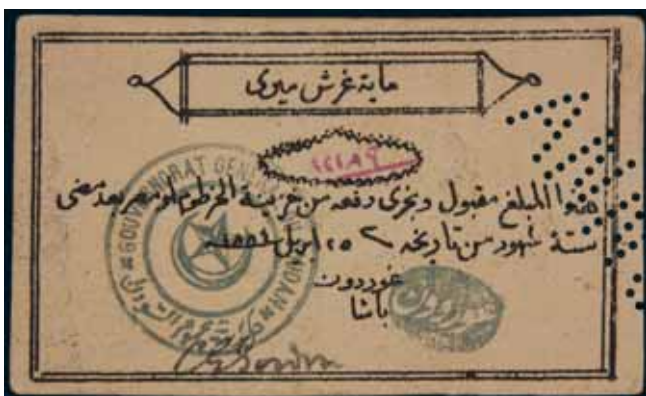 ماية غرش ميرى
هذا المبلغ مقبول ويجرى دفعه من خزينة الخرطوم او مصر بعد مضى
ستة شهور من تاريخه ٢٥ ابريل ١٨٨٤
غوردون
باشا
GOUVERNORAT
Gordon